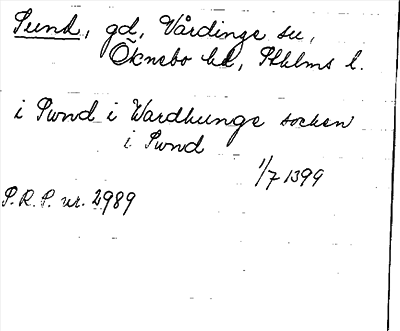 Sund, gd, Vårdinge sn,
Öknebo hd, Sthlms l.
i Swnd i Wardhunge socken
i Swnd
1/7 1399
P.R.P. nr. 2989